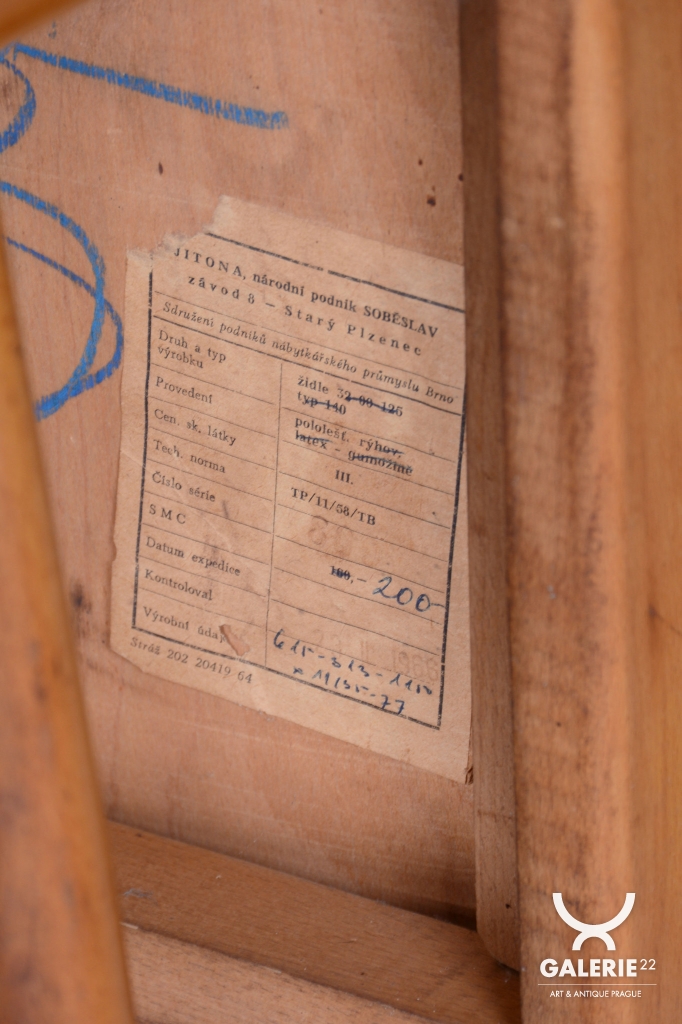 JITONA, národní podnik SOBĚSLAV
závod 8 — Starý Plzenec
Sdružení podniků nábytkářského průmyslu Brno
Druh a typ
výrobku
židle 32-09-126
typ 140
Provedení
pololešt. rýhov.
latex - gumožíně
Cen. sk. látky
III.
Tech. norma
TP/11/58/TB
Číslo série
SMC
180,- 200-
Datum expedice
Kontroloval
Výrobní údaj
615-313-1150
x 11/35-77
Stráž 202 20419 64
GALERIE22
ART & ANTIQUE PRAGUE